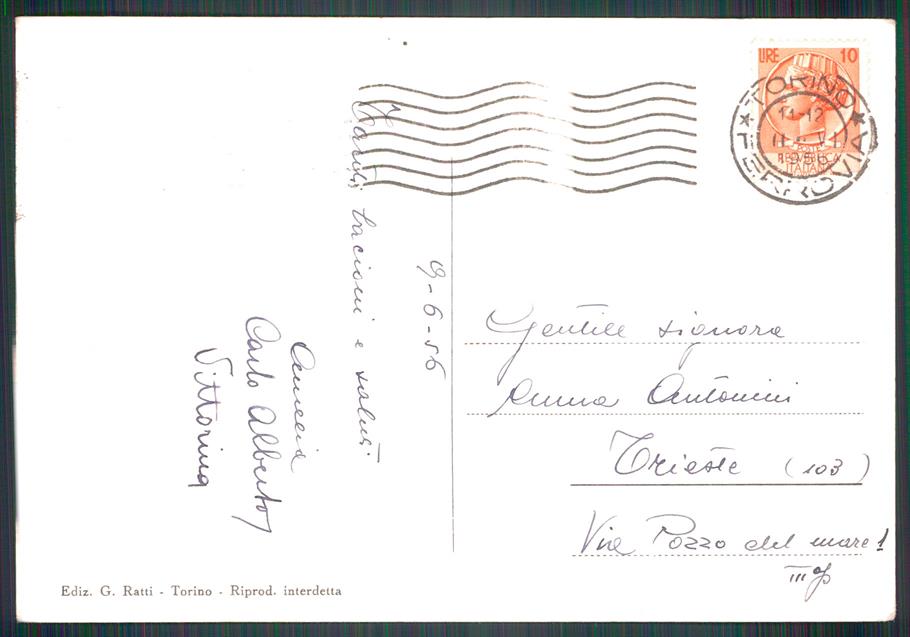 LIRE 10
POSTE
REPVBBLICA
ITALIANA
TORINO
FERROVIA
11-12
1956
9-6-56
bacioni e saluti
Carlo Alberto
Vittorina
Gentile signora
Anna Antonini
Trieste (103)
Via Pozzo del mare 1
III
Ediz. G. Ratti - Torino - Riprod. interdetta